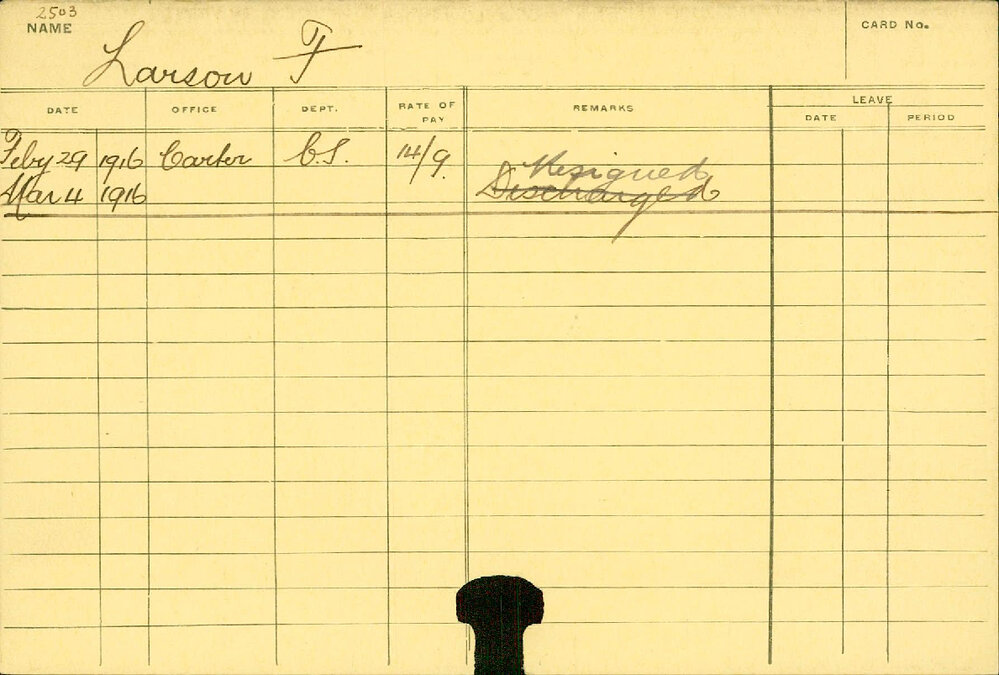 2503
NAME
CARD No.
Larson F
DATE OFFICE DEPT. RATE OF PAY REMARKS LEAVE
DATE PERIOD
Feby 29 1916 Carter C.S. 14/9.
Resigned
Mar 4 1916 Discharged